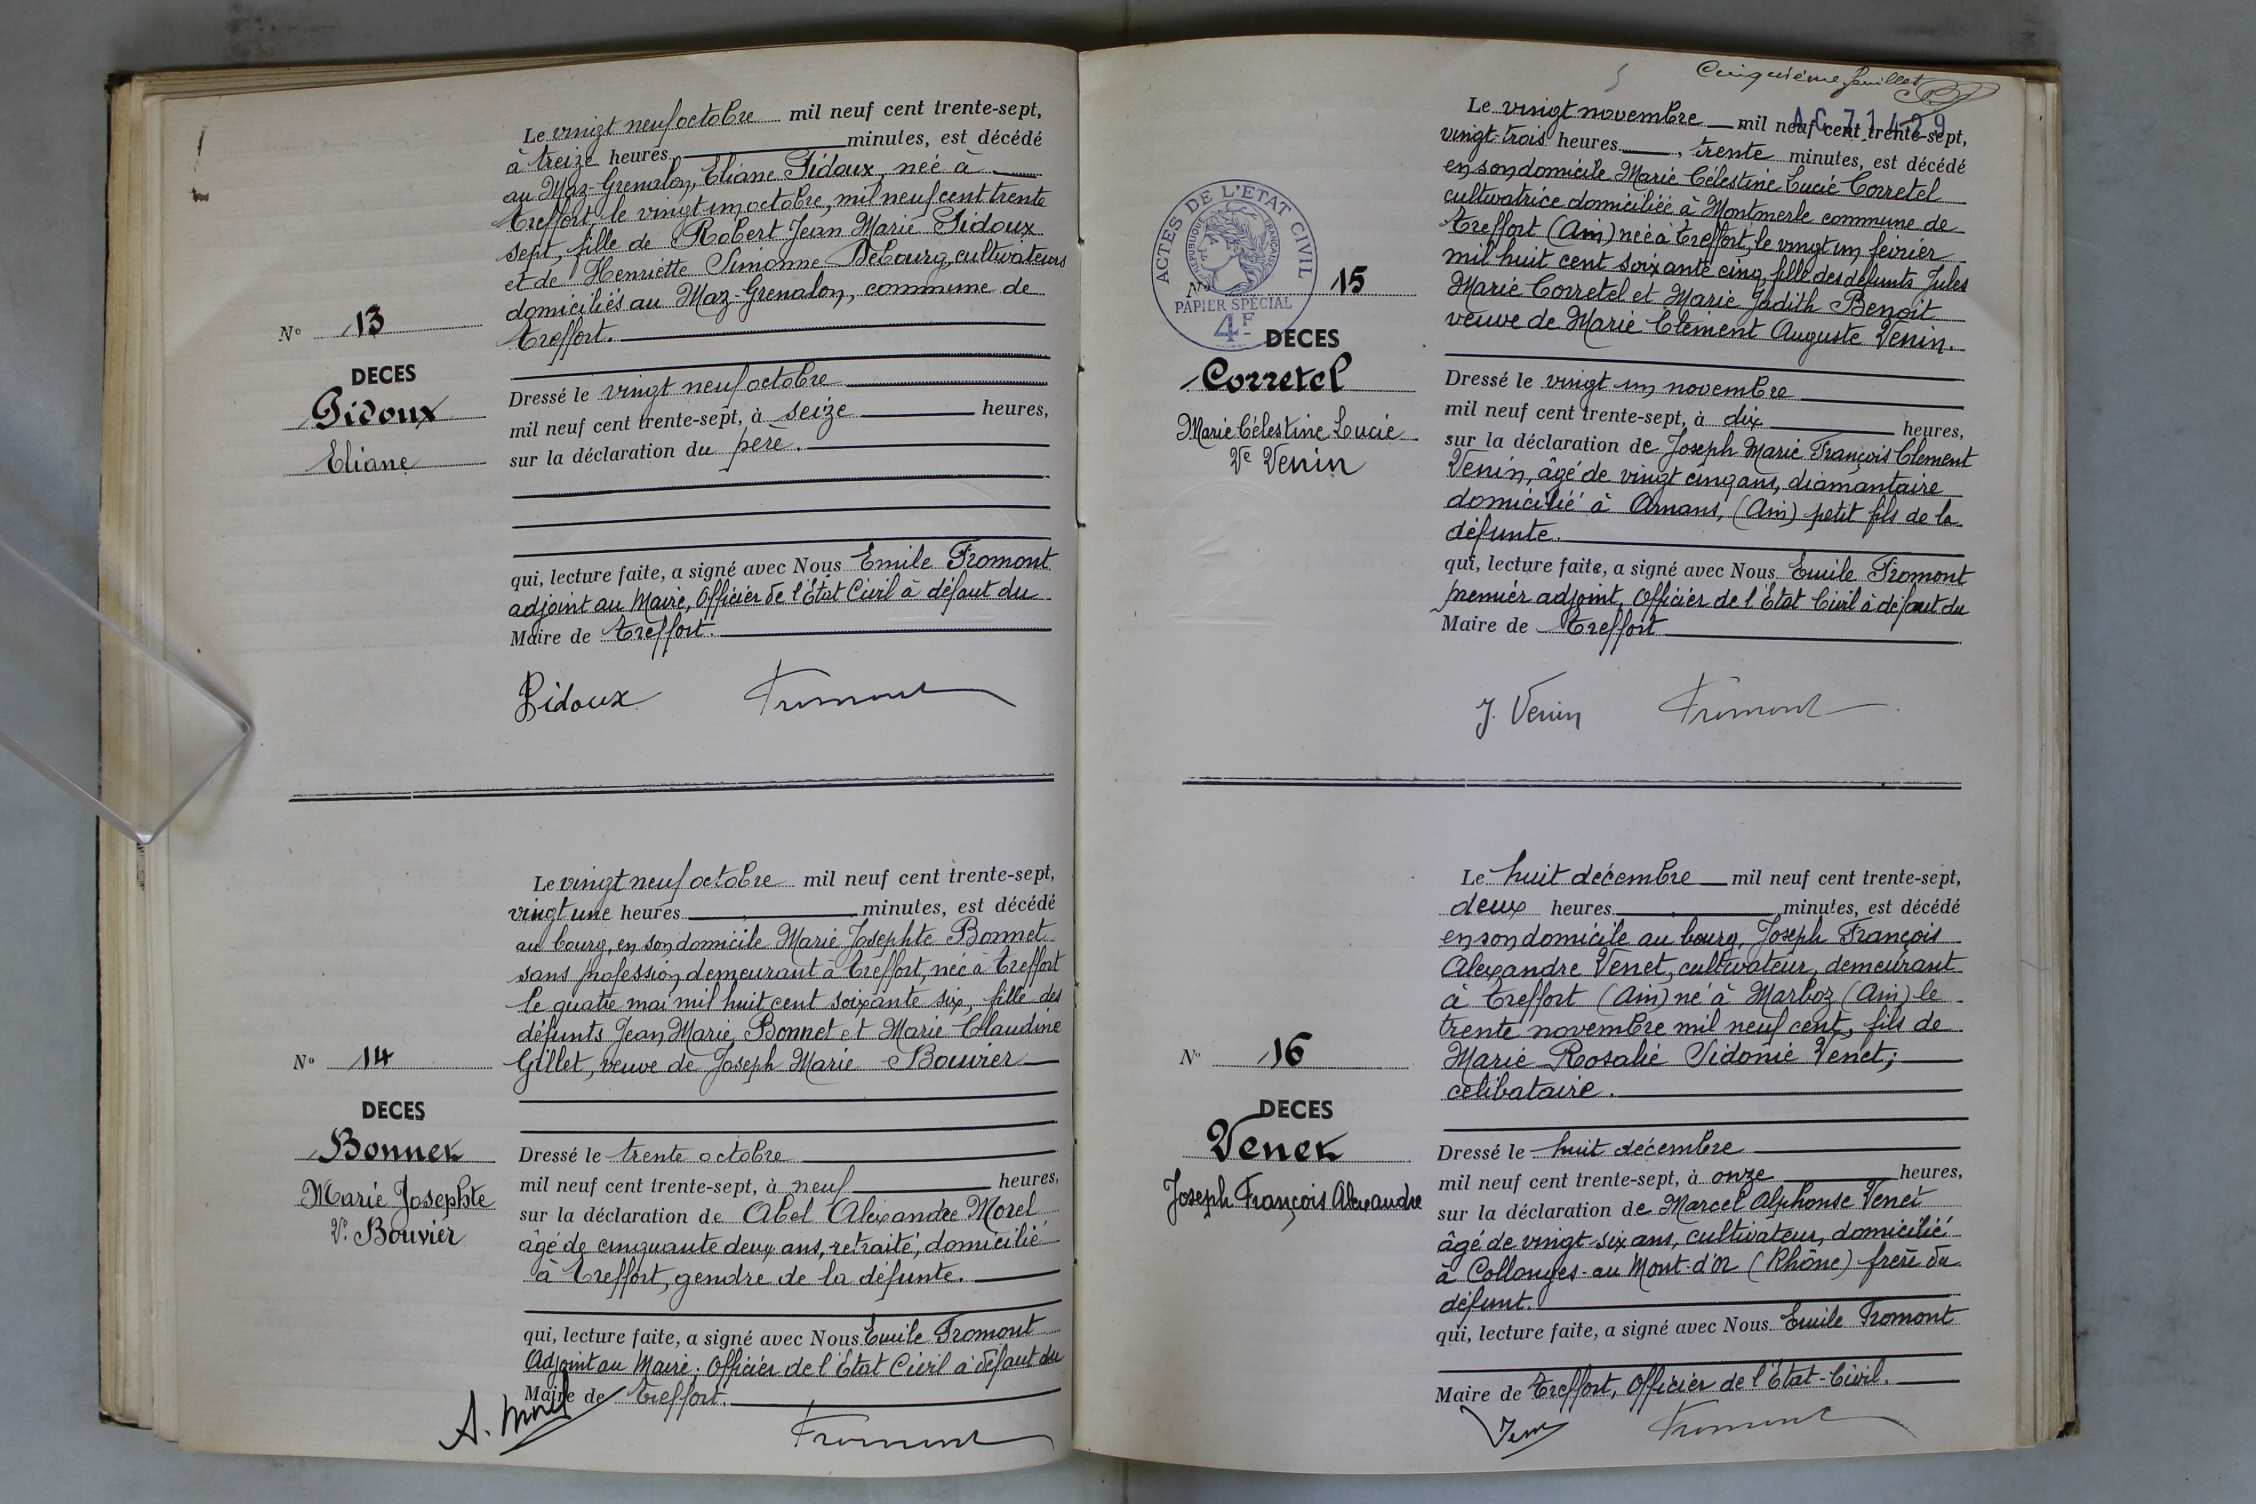 Le vingt neuf octobre mil neuf cent trente-sept,
à treize heures minutes, est décédé
au Maz-Grenalon, Eliane Pidoux, née à
Treffort, le vingt un octobre, mil neuf cent trente
sept, fille de Robert Jean Marie Pidoux
et de Henriette Simonne Debourg, cultivateurs
domiciliés au Maz-Grenalon, commune de
Treffort.
N° 13
DECES
Pidoux
Eliane
Dressé le vingt neuf octobre
mil neuf cent trente-sept, à seize heures,
sur la déclaration du père.
qui, lecture faite, a signé avec Nous Emile Fromont
adjoint au Maire, Officier de l'Etat Civil à défaut du
Maire de Treffort.
Pidoux Fromont
Le vingt neuf octobre mil neuf cent trente-sept,
vingt une heures minutes, est décédé
au bourg, en son domicile Marie Josephte Bonnet
sans profession, demeurant à Treffort, née à Treffort
le quatre mai mil huit cent soixante six, fille des
défunts Jean Marie Bonnet et Marie Claudine
Gillet, veuve de Joseph Marie Bouvier
N° 14
DECES
Bonnet
Marie Josephte
Ve Bouvier
Dressé le trente octobre
mil neuf cent trente-sept, à neuf heures,
sur la déclaration de Abel Alexandre Morel
âgé de cinquante deux ans, retraité, domicilié
à Treffort, gendre de la défunte.
qui, lecture faite, a signé avec Nous Emile Fromont
Adjoint au Maire, Officier de l'Etat Civil à défaut du
Maire de Treffort.
A. Morel Fromont
Cinquième feuillet
AC 71429
Le vingt novembre mil neuf cent trente-sept,
vingt-trois heures, trente minutes, est décédé
en son domicile Marie Célestine Lucie Corretel
cultivatrice domiciliée à Montmerle commune de
Treffort (Ain) née à Treffort, le vingt un février
mil huit cent soixante cinq, fille des défunts Jules
Marie Corretel et Marie Judith Benoit
veuve de Marie Clément Auguste Venin.
ACTES DE L'ETAT CIVIL
REPUBLIQUE FRANÇAISE
PAPIER SPECIAL
4F
N° 15
DECES
Corretel
Marie Célestine Lucie
Ve Venin
Dressé le vingt un novembre
mil neuf cent trente-sept, à dix heures,
sur la déclaration de Joseph Marie François Clément
Venin, âgé de vingt cinq ans, diamantaire
domicilié à Arnans, (Ain) petit fils de la
défunte.
qui, lecture faite, a signé avec Nous Emile Fromont
premier adjoint, Officier de l'Etat Civil à défaut du
Maire de Treffort
J. Venin Fromont
Le huit décembre mil neuf cent trente-sept,
deux heures minutes, est décédé
en son domicile au bourg, Joseph François
Alexandre Venet, cultivateur, demeurant
à Treffort (Ain) né à Marboz (Ain) le
trente novembre mil neuf cent, fils de
Marie Rosalie Sidonie Venet;
célibataire.
N° 16
DECES
Venet
Joseph François Alexandre
Dressé le huit décembre
mil neuf cent trente-sept, à onze heures,
sur la déclaration de Marcel Alphonse Venet
âgé de vingt-six ans, cultivateur, domicilié
à Collonges-au Mont-d'or (Rhône) frère du
défunt.
qui, lecture faite, a signé avec Nous Emile Fromont
Maire de Treffort, Officier de l'Etat-Civil.
Fromont